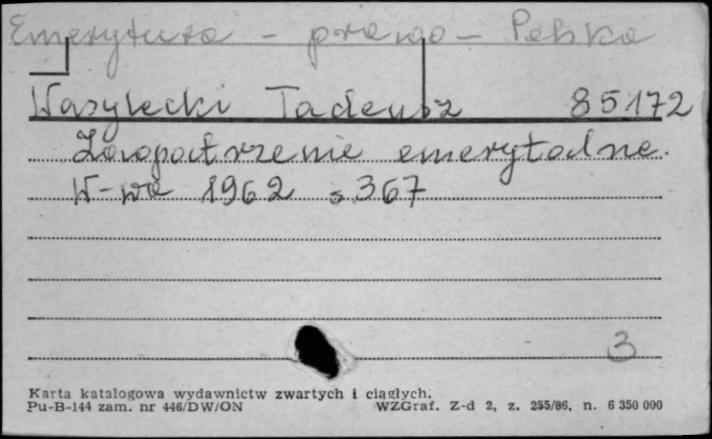 Emerytura - prawo - Polska
Wasylecki Tadeusz 85172
Zaopatrzenie emerytalne.
W-wa 1962 s 367
3
Karta katalogowa wydawnictw zwartych i ciągłych.
Pu-B-144 zam. nr 446/DW/ON WZGraf. Z-d 2, z. 255/86, n. 6 350 000